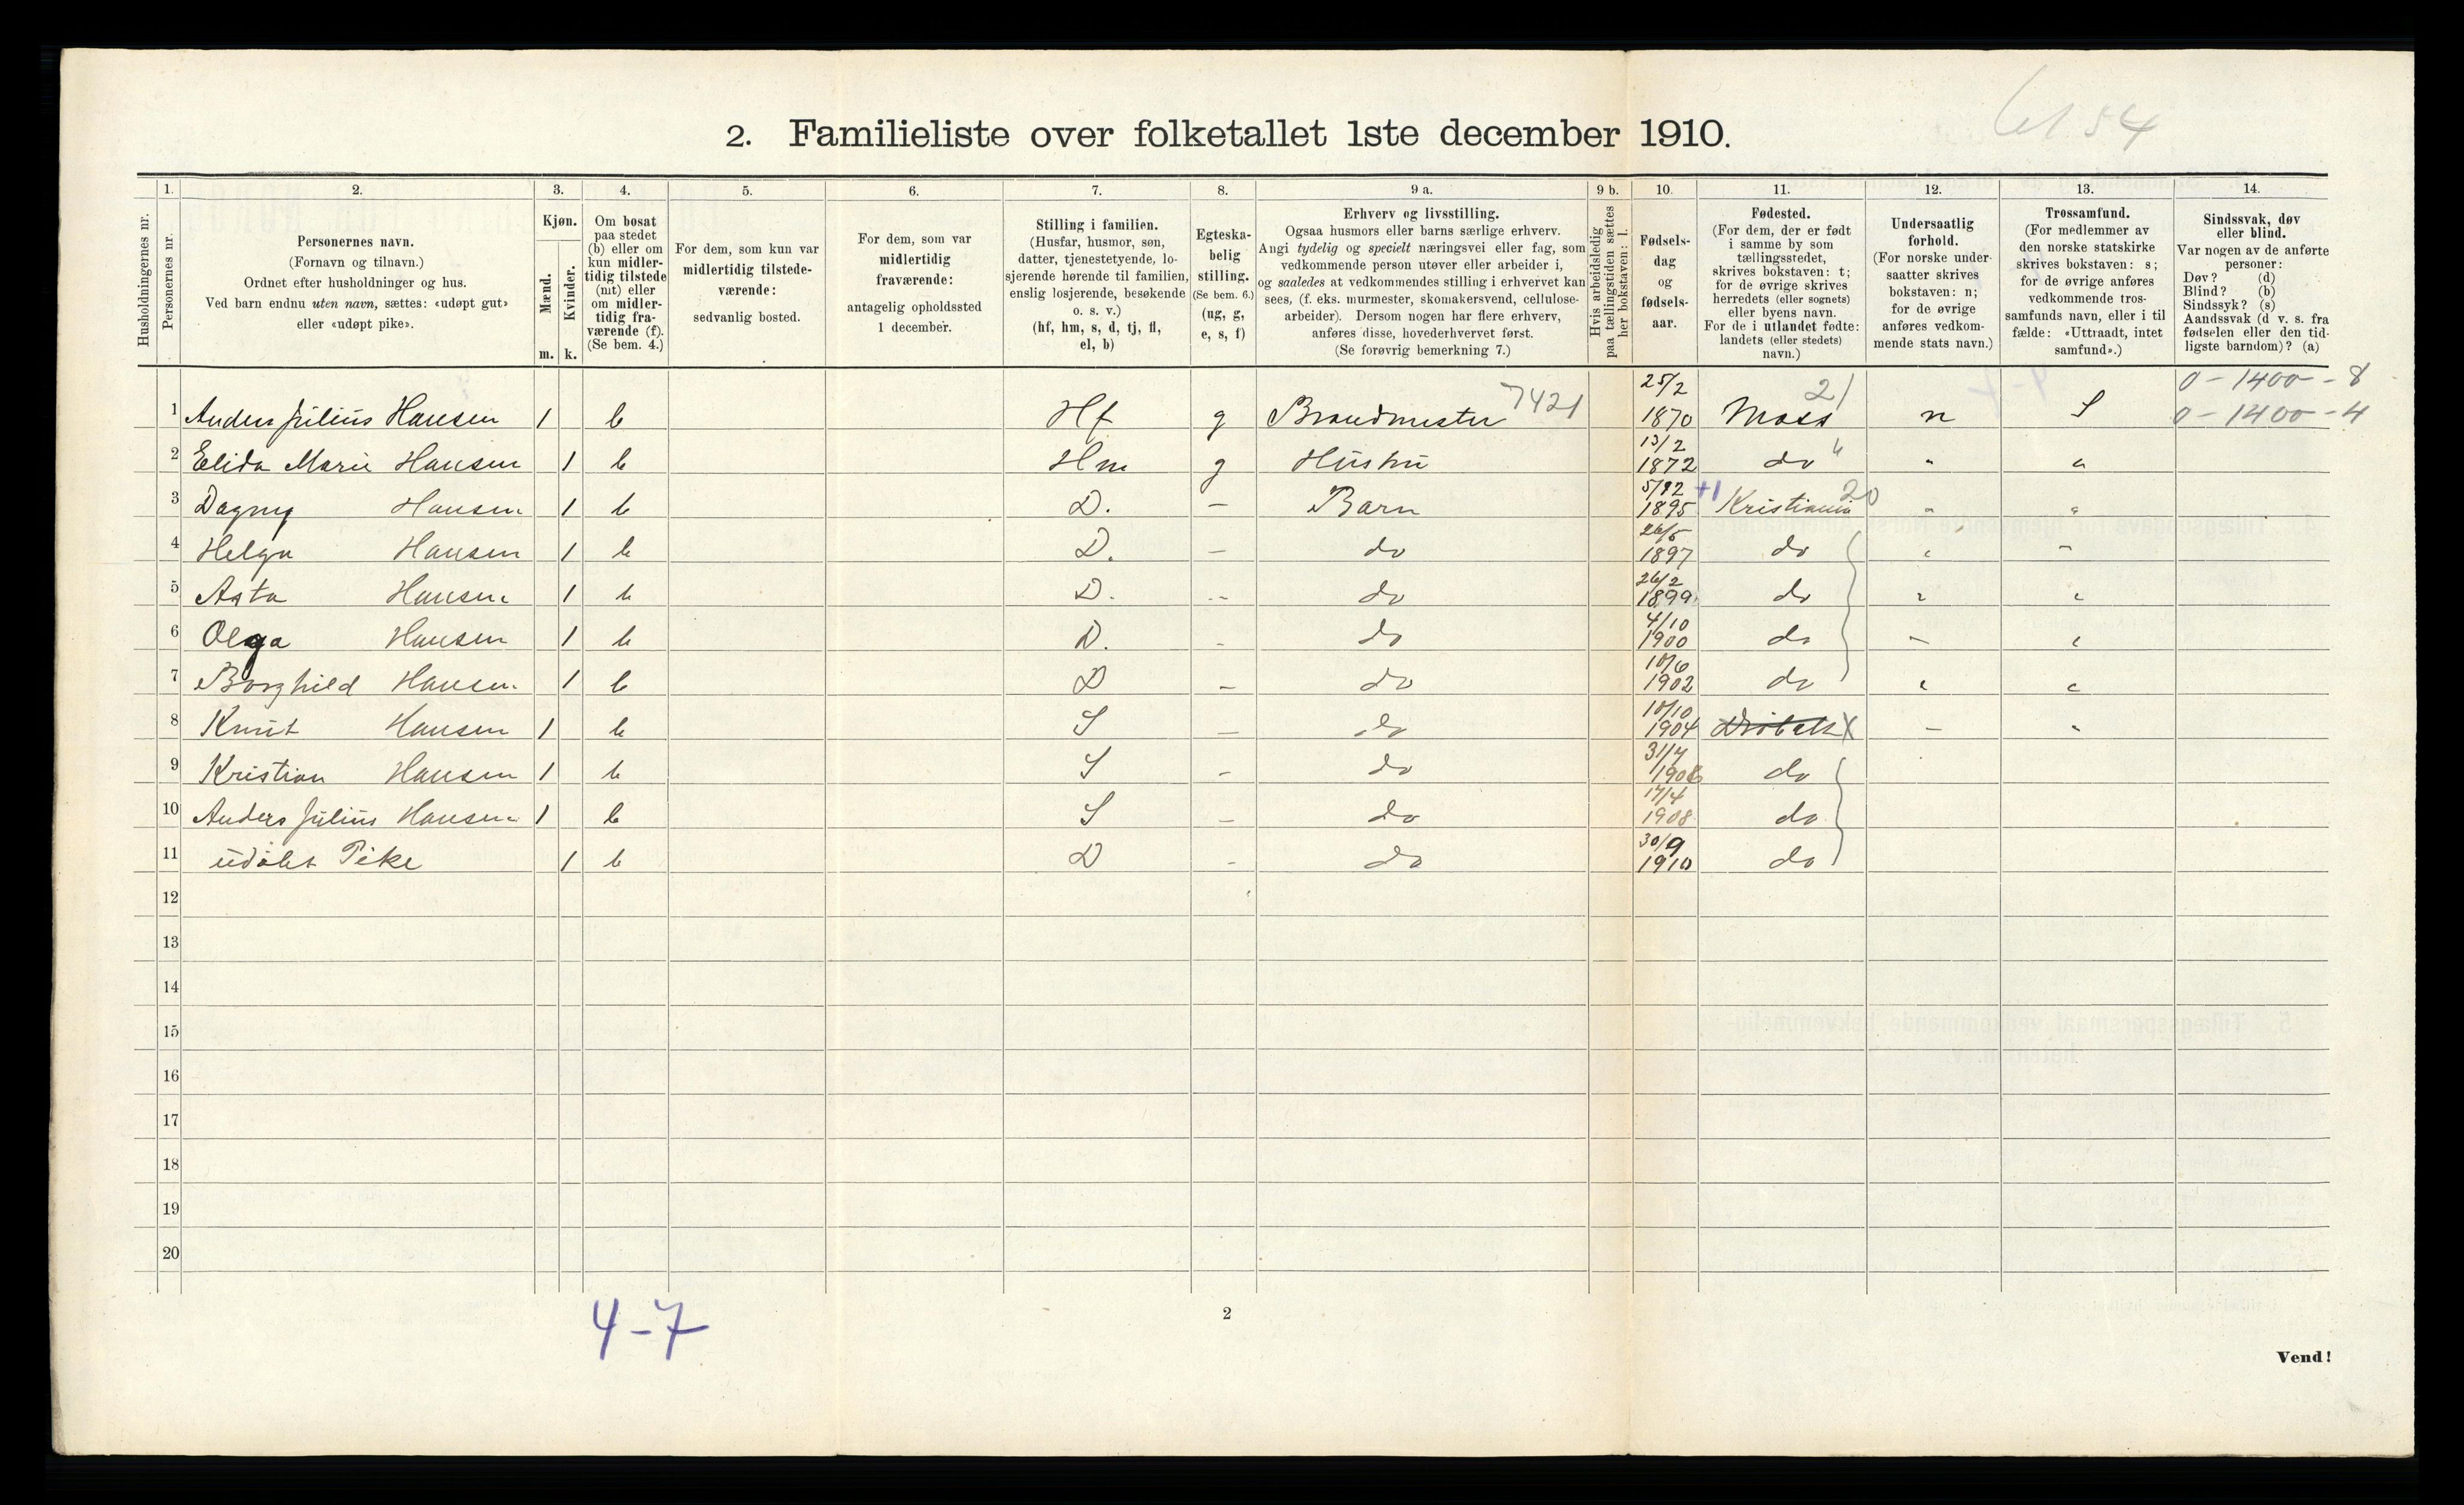 6154
2. Familieliste over folketallet 1ste december 1910.
Husholdningernes nr.
1. Personernes nr.
2. Personernes navn. (Fornavn og tilnavn.) Ordnet efter husholdninger og hus. Ved barn endnu uten navn, sættes: «udøpt gut» eller «udøpt pike».
3. Kjøn. Mænd. m. Kvinder. k.
4. Om bosat paa stedet (b) eller om kun midlertidig tilstede (mt) eller om midlertidig fraværende (f). (Se bem. 4.)
5. For dem, som kun var midlertidig tilstedeværende: sedvanlig bosted.
6. For dem, som var midlertidig fraværende: antagelig opholdssted 1 december.
7. Stilling i familien. (Husfar, husmor, søn, datter, tjenestetyende, losjerende hørende til familien, enslig losjerende, besøkende o. s. v.) (hf, hm, s, d, tj, fl, el, b)
8. Egteskabelig stilling. (Se bem. 6.) (ug, g, e, s, f)
9 a. Erhverv og livsstilling. Ogsaa husmors eller barns særlige erhverv. Angi tydelig og specielt næringsvei eller fag, som vedkommende person utøver eller arbeider i, og saaledes at vedkommendes stilling i erhvervet kan sees, (f. eks. murmester, skomakersvend, cellulosearbeider). Dersom nogen har flere erhverv, anføres disse, hovederhvervet først. (Se forøvrig bemerkning 7.)
9 b. Hvis arbeidsledig paa tællingstiden sættes her bokstaven: l.
10. Fødselsdag og fødselsaar.
11. Fødested. (For dem, der er født i samme by som tællingsstedet, skrives bokstaven: t; for de øvrige skrives herredets (eller sognets) eller byens navn. For de i utlandet fødte: landets (eller stedets) navn.)
12. Undersaatlig forhold. (For norske undersaatter skrives bokstaven: n; for de øvrige anføres vedkommende stats navn.)
13. Trossamfund. (For medlemmer av den norske statskirke skrives bokstaven: s; for de øvrige anføres vedkommende trossamfunds navn, eller i tilfælde: «Uttraadt, intet samfund».)
14. Sindssvak, døv eller blind. Var nogen av de anførte personer: Døv? (d) Blind? (b) Sindssyk? (s) Aandssvak (d v. s. fra fødselen eller den tidligste barndom)? (a)
1 Anders Julius Hansen 1 b Hf g Brandmester 7421 25/2 1870 Moss 21 n S 0-1400-8 0-1400-4
2 Elida Marie Hansen 1 b Hm g Hustru 13/2 1872 do " " "
3 Dagny Hansen 1 b D. - Barn 5/12 1895 +1 Kristiania 20 " "
4 Helga Hansen 1 b D. - do 26/5 1897 do " "
5 Asta Hansen 1 b D. - do 26/2 1899 do " "
6 Olga Hansen 1 b D. - do 4/10 1900 do " "
7 Borghild Hansen 1 b D - do 10/6 1902 do " "
8 Knut Hansen 1 b S - do 10/10 1904 Drøbak X - "
9 Kristian Hansen 1 b S - do 1906 do
10 Anders Julius Hansen 1 b S - do 17/4 1908 do
11 udøbt Pike 1 b D - do 30/9 1910 do
12
13
14
15
16
17
18
19
20
4-7
2
Vend!